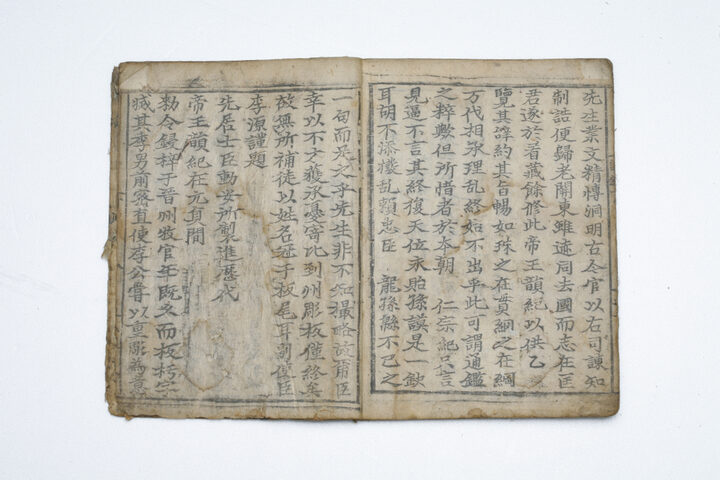 先生業文精博洞明古今官以右司諫知
制誥便歸老關東雖迹同去國而志在匡
君遂於看藏餘修此帝王韻紀以供乙
覽其諄約其旨暢如珠之在貫綱之在綱
万代相承理乱終始不出乎此可謂通鑑
之粹歟但所惜者於本朝 仁宗紀只言
見逼不言其終復天位永貽孫謀是一欽
耳胡不添乱賴忠臣 龍孫緜不已之
一句而足之乎先生非不知撮略故爾臣
幸以不才獲承憂寄比到州彫板僅終矣
故無所補徒以姓名冠于板尾耳副使臣
李源謹題
先居士臣動安所製進歷代
帝王韻紀在元貞間
勑令鋟梓于晋州牧官年既久而板朽字
其季男前密直使李公嘗以重彫為意